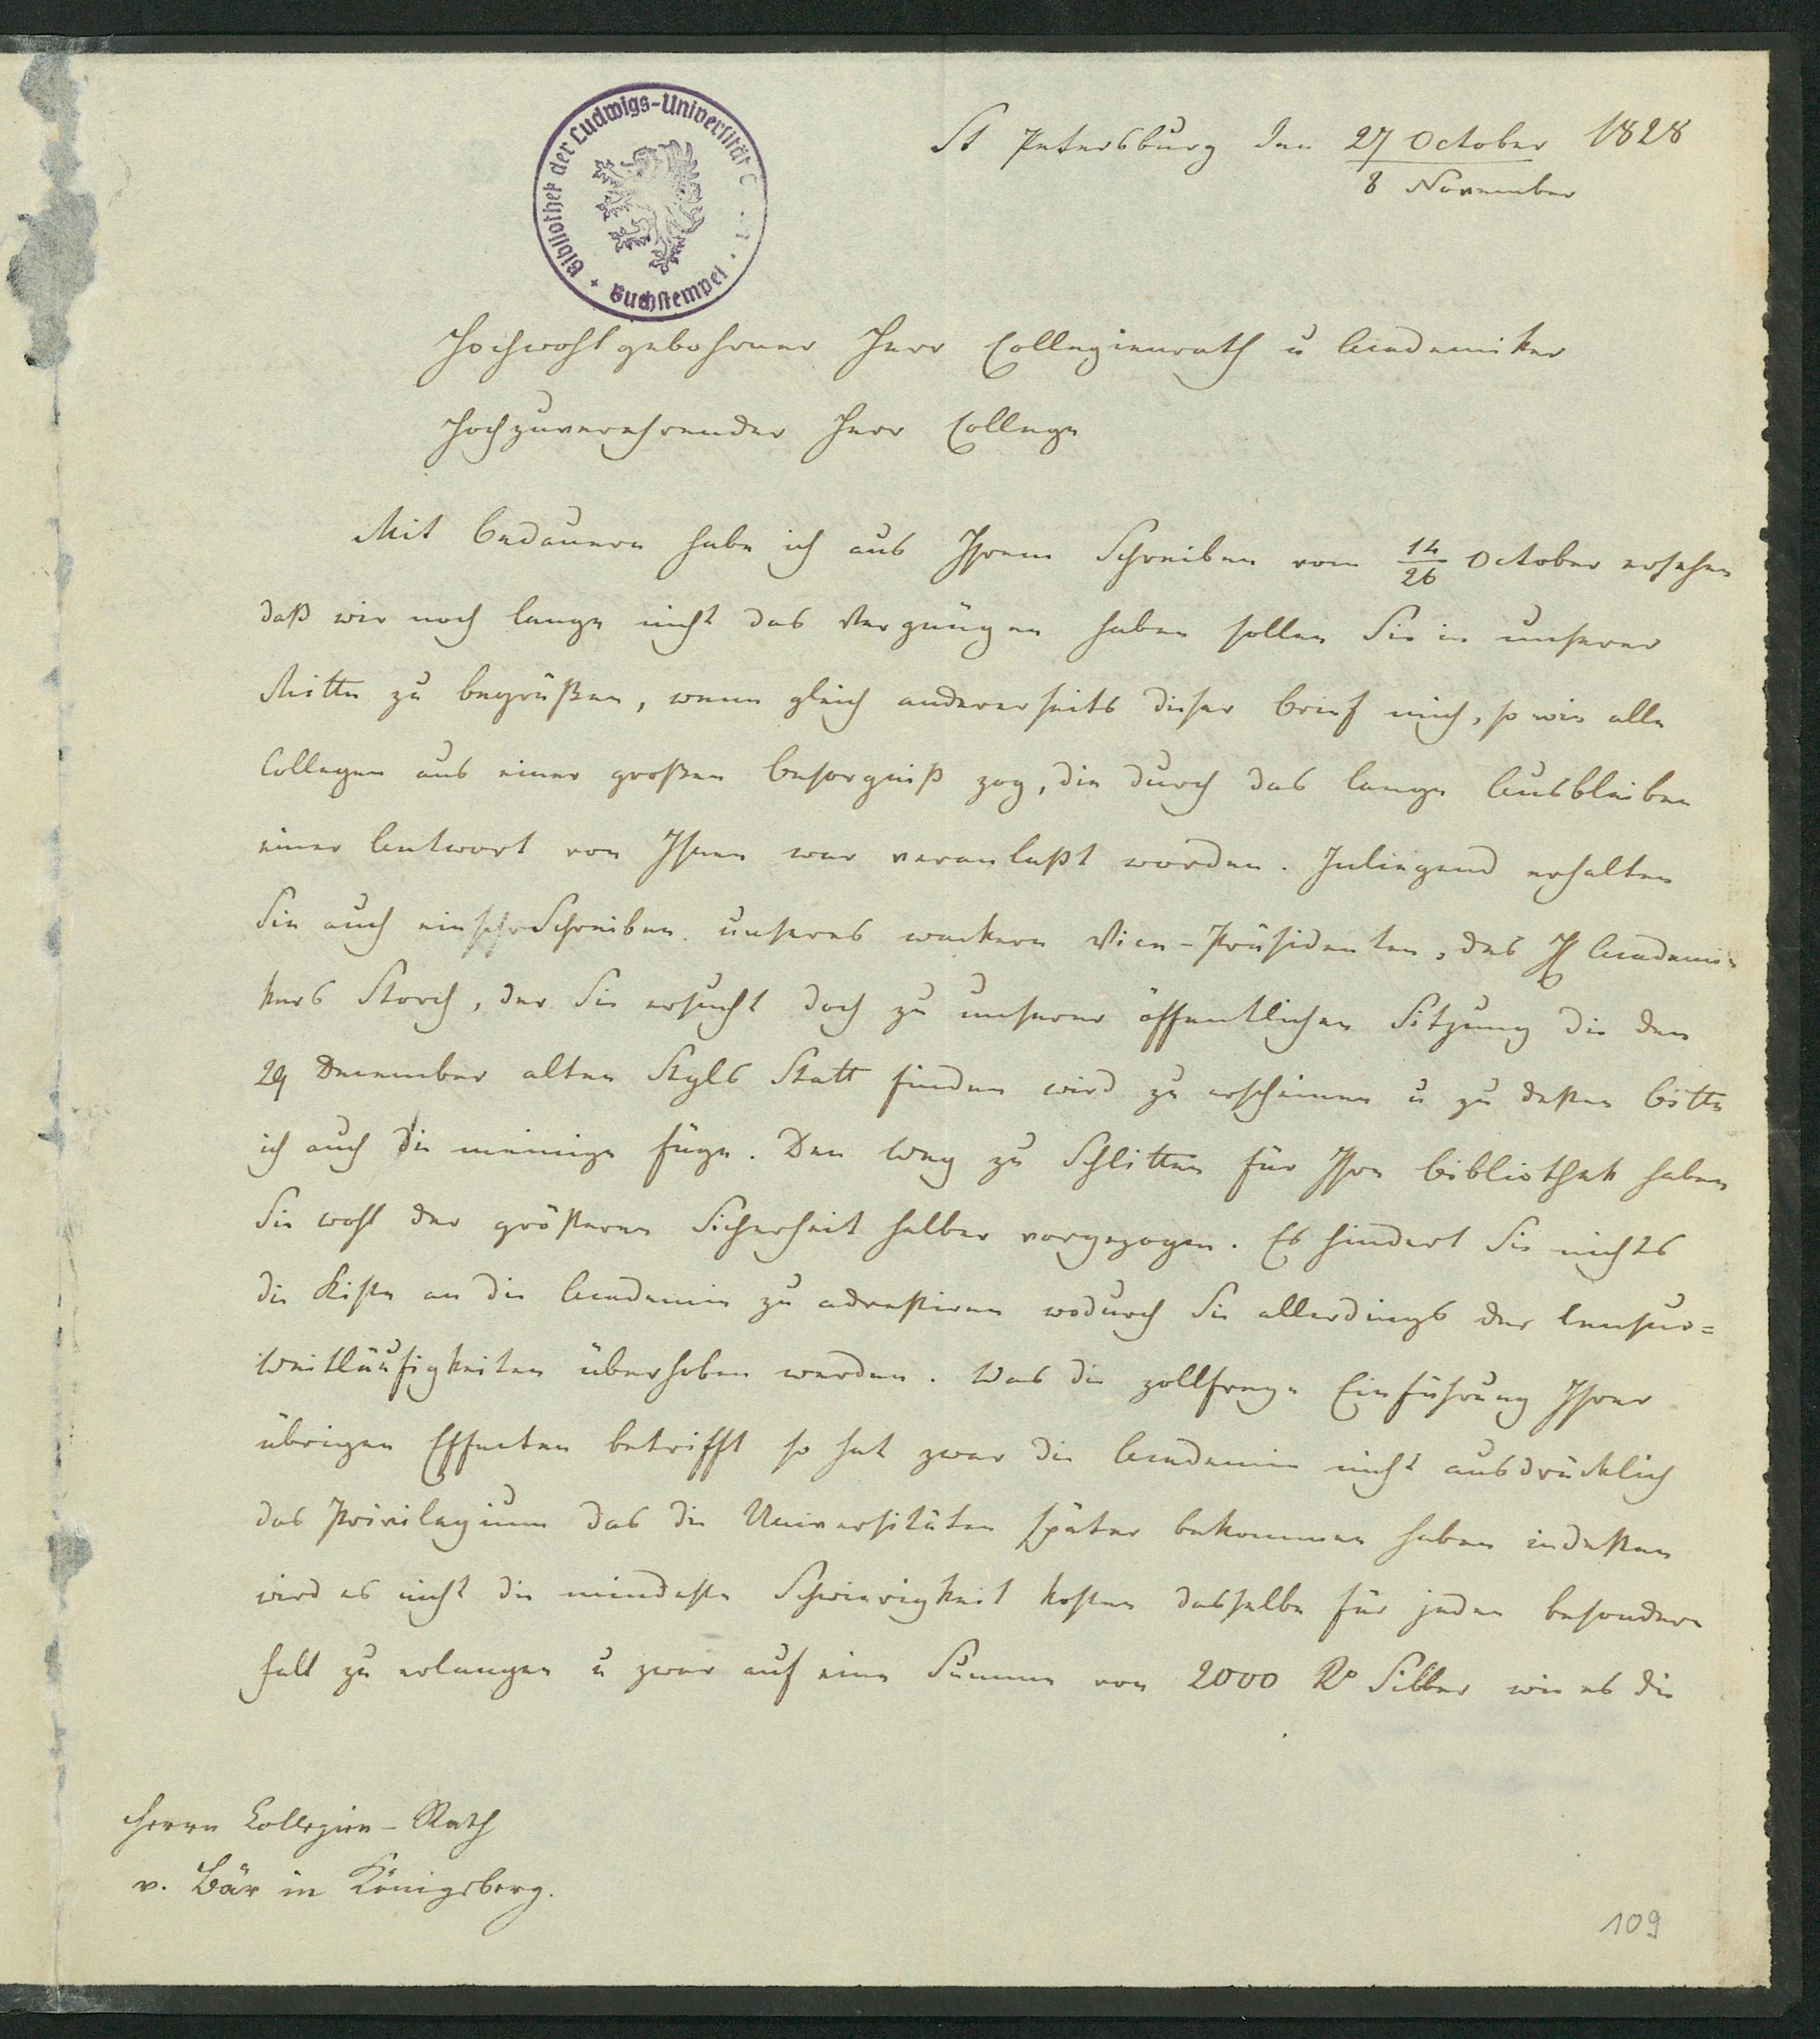 Bibliothek der Ludwigs-Universität
Buchstempel
St Petersburg den 27 October 1828
8 November
Hochwohlgebohrner Herr Collegienrath u Academiker
Hochzuverehrender Herr College
Mit Bedauern habe ich aus Ihrem Schreiben vom 14/26 October ersehen
daß wir noch lange nicht das Vergnügen haben sollen Sie in unserer
Mitte zu begrüßen, wenn gleich andererseits dieser Brief mich, so wie alle
Collegen aus einer großen Besorgniß zog, die durch das lange Ausbleiben
einer Antwort von Ihnen war veranlaßt worden. Inliegend erhalten
Sie auch ein Schreiben unseres wackern Vice-Präsidenten, des H Academi-
kers Storch, der Sie ersucht doch zu unserer öffentlichen Sitzung die den
29 December alten Styls Statt finden wird zu erscheinen u zu dessen Bitte
ich auch die meinige füge. Den Weg zu Schlitten für Ihre Bibliothek haben
Sie wohl der größeren Sicherheit halber vorgezogen. Es hindert Sie nichts
die Kiste an die Academie zu adressiren wodurch Sie allerdings der Censur=
Weitläufigkeiten überhoben werden. Was die zollfreye Einführung Ihrer
übrigen Effecten betrifft so hat zwar die Academie nicht ausdrücklich
das Privilegium das die Universitäten später bekommen haben indessen
wird es nicht die mindeste Schwierigkeit kosten dasselbe für jeden besondern
Fall zu erlangen u zwar auf eine Summe von 2000 R° Silber wie es die
Herrn Collegien-Rath
v. Bär in Königsberg.
109